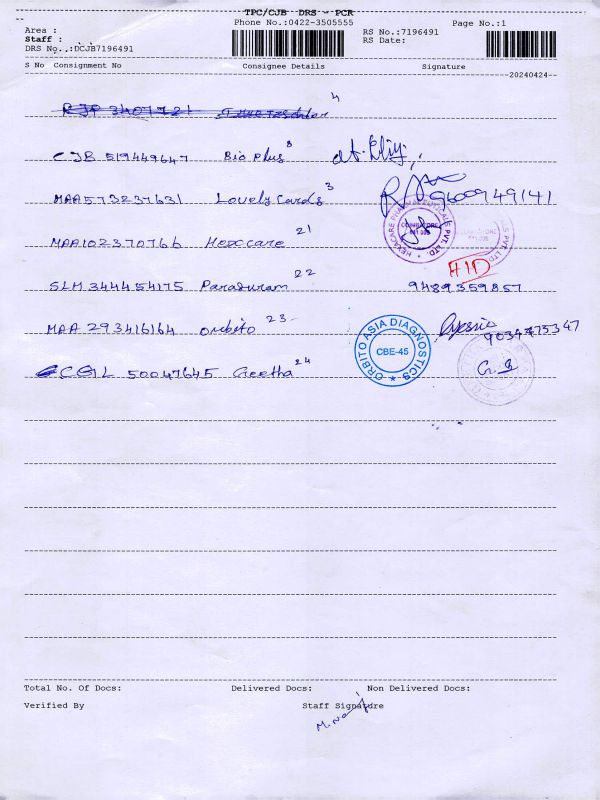 TPC/CJB DRS - PCR
Phone No.:0422-3505555 Page No.:1
Area :
Staff :
DRS No.,:DCJB7196491
RS No.:7196491
RS Date:
S No Consignment No Consignee Details Signature
--20240424--
4
RJP 3407721
CJB 519449647 Bio Plus 8
MAA573237631 Lovely Cards 3 9600949141
MAA102370766 Hexacare 21
HEXACARE PHARMACEUTICALS PVT. LTD.
HID
SLM344454175 Parasuram 22 9489359857
MAA 293416164 Orbito 23
ORBITO ASIA DIAGNOSTICS
CBE-45
9034475347
CGL 50047645 Geetha 24
Total No. Of Docs: Delivered Docs: Non Delivered Docs:
Verified By Staff Signature